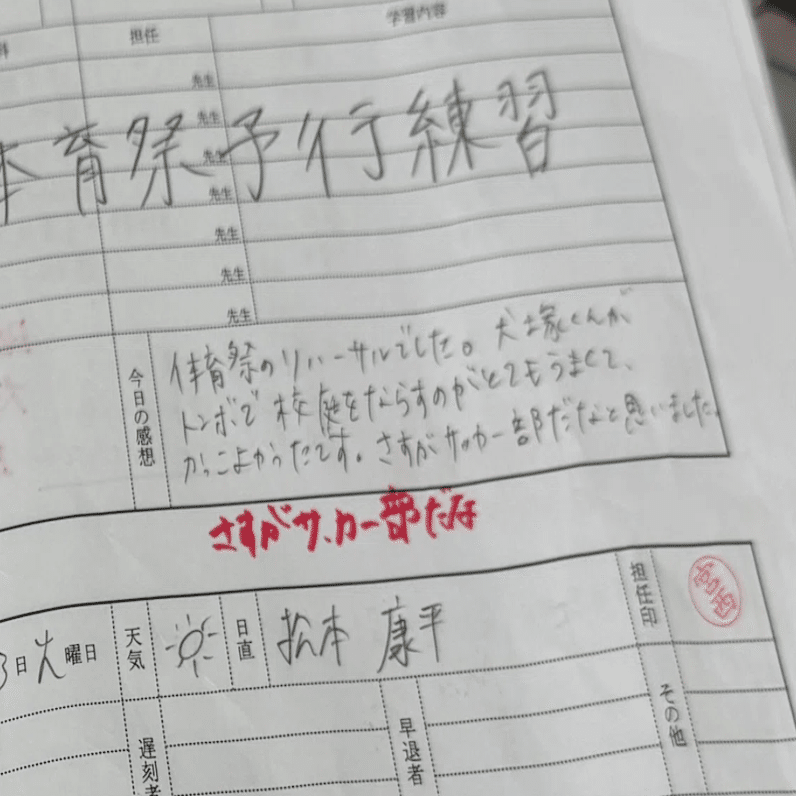 担任
学習内容
先生
先生
先生
先生
先生
先生
先生
体育祭予行練習
今日の感想
体育祭のリハーサルでした。犬塚くんが、
トンボで校庭をならすのがとてもうまくて、
かっこよかったです。さすがサッカー部だなと思いました。
さすがサッカー部だな
日火曜日
天気
日直
松本 康平
担任印
遅刻者
早退者
その他